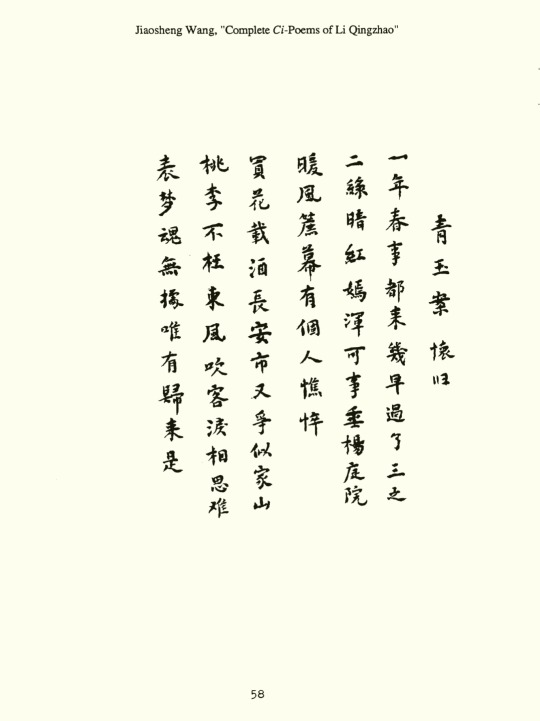 Jiaosheng Wang, "Complete Ci-Poems of Li Qingzhao"
青玉案 懷归
一年春事都来幾早過了三之
二綠暗紅嫣渾可事垂楊庭院
暖風簾幕有個人憔悴
買花載酒長安市又爭似家山
桃李不枉東風吹客淚相思难
表梦魂無據唯有歸来是
58